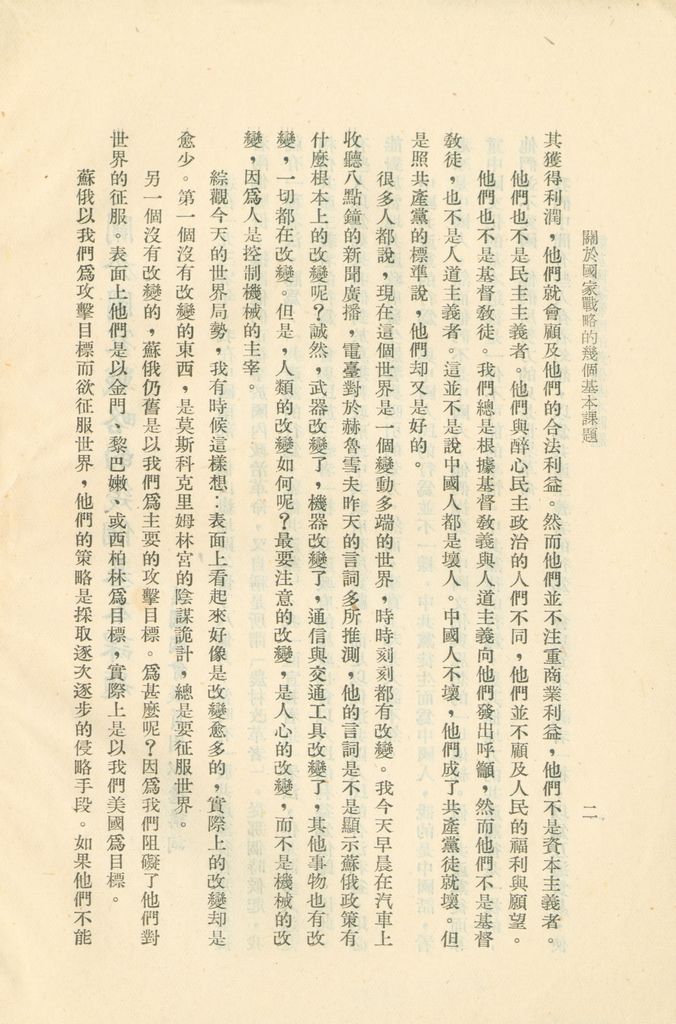 關於國家戰略的幾個基本課題
二
其獲得利潤，他們就會顧及他們的合法利益。然而他們並不注重商業利益，他們不是資本主義者。
他們也不是民主主義者。他們與醉心民主政治的人們不同，他們並不顧及人民的福利與願望。
他們也不是基督敎徒。我們總是根據基督敎義與人道主義向他們發出呼籲，然而他們不是基督
敎徒，也不是人道主義者。這並不是說中國人都是壞人。中國人不壞，他們成了共產黨徒就壞。但
是照共產黨的標準說，他們却又是好的。
很多人都說，現在這個世界是一個變動多端的世界，時時刻刻都有改變。我今天早晨在汽車上
收聽八點鐘的新聞廣播，電臺對於赫魯雪夫昨天的言詞多所推測，他的言詞是不是顯示蘇俄政策有
什麼根本上的改變呢？誠然，武器改變了，機器改變了，通信與交通工具改變了，其他事物也有改
變，一切都在改變。但是，人類的改變如何呢？最要注意的改變，是人心的改變，而不是機械的改
變，因爲人是控制機械的主宰。
綜觀今天的世界局勢，我有時候這樣想：表面上看起來好像是改變愈多的，實際上的改變却是
愈少。第一個沒有改變的東西，是莫斯科克里姆林宮的陰謀詭計，總是要征服世界。
另一個沒有改變的，蘇俄仍舊是以我們爲主要的攻擊目標。爲甚麼呢？因爲我們阻礙了他們對
世界的征服。表面上他們是以金門、黎巴嫩、或西柏林爲目標，實際上是以我們美國爲目標。
蘇俄以我們爲攻擊目標而欲征服世界，他們的策略是採取逐次逐步的侵略手段。如果他們不能